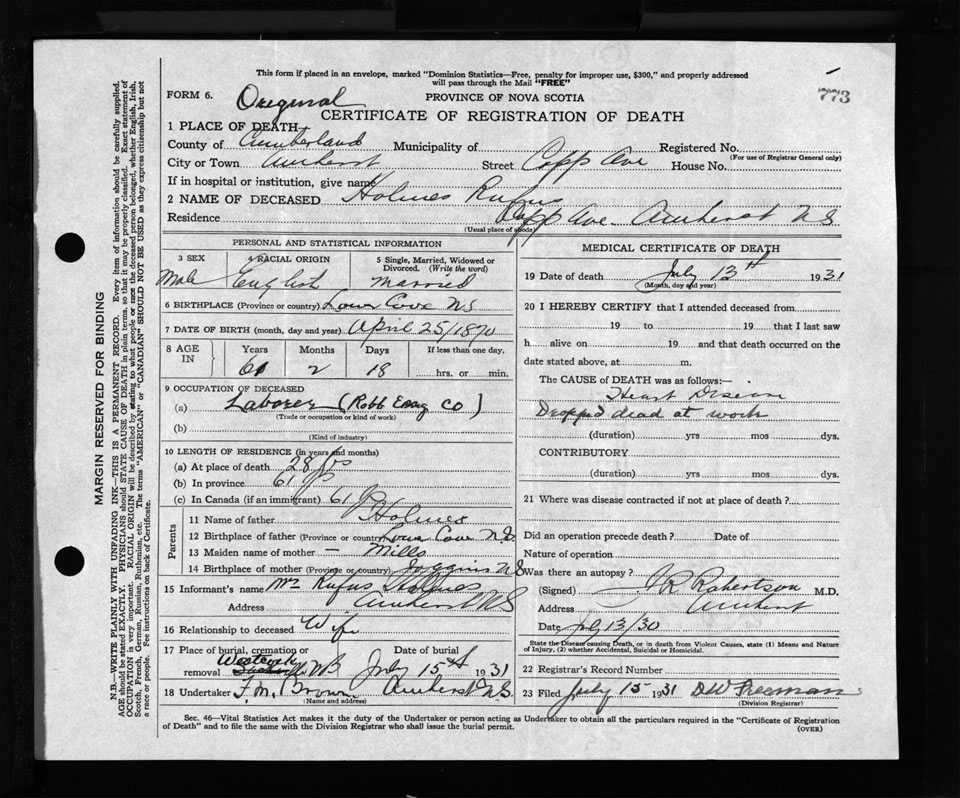 This form if placed in an envelope, marked "Dominion Statistics—Free, penalty for improper use, $300," and properly addressed
will pass through the Mail "FREE"
773
FORM 6. Original
PROVINCE OF NOVA SCOTIA
CERTIFICATE OF REGISTRATION OF DEATH
1 PLACE OF DEATH
County of Cumberland Municipality of Registered No.
(For use of Registrar General only)
City or Town Amherst Street Copp Ave House No.
If in hospital or institution, give name
2 NAME OF DECEASED Holmes Rufus
Residence Copp Ave Amherst N S
(Usual place of abode)
PERSONAL AND STATISTICAL INFORMATION
3 SEX 4 RACIAL ORIGIN 5 Single, Married, Widowed or
Divorced. (Write the word)
Male English Married
6 BIRTHPLACE (Province or country) Lower Cove N S
7 DATE OF BIRTH (month, day and year) April 25/1870
8 AGE IN Years Months Days If less than one day,
61 2 18 hrs. or min.
9 OCCUPATION OF DECEASED
(a) Laborer (Robb Eng Co)
(Trade or occupation or kind of work)
(b)
(Kind of industry)
10 LENGTH OF RESIDENCE (in years and months)
(a) At place of death 28 yrs
(b) In province 61 yrs
(c) In Canada (if an immigrant) 61
Parents
11 Name of father Holmes
12 Birthplace of father (Province or country) Lower Cove N.S.
13 Maiden name of mother — Mills
14 Birthplace of mother (Province or country) Joggins N S
15 Informant's name Mrs Rufus Holmes
Address Amherst N S
16 Relationship to deceased Wife
17 Place of burial, cremation or Date of burial
removal Westcock N B July 15th 1931
18 Undertaker F. M. Brown Amherst N.S.
(Name and address)
MEDICAL CERTIFICATE OF DEATH
19 Date of death July 13th 1931
(Month, day and year)
20 I HEREBY CERTIFY that I attended deceased from
19 to 19 that I last saw
h alive on 19 and that death occurred on the
date stated above, at m.
The CAUSE OF DEATH was as follows:—
Heart Disease
Dropped dead at work
(duration) yrs mos dys.
CONTRIBUTORY
(duration) yrs mos dys.
21 Where was disease contracted if not at place of death?
Did an operation precede death? Date of
Nature of operation
Was there an autopsy?
(Signed) J R Robertson M.D.
Address Amherst
Date July 13/30
State the Disease causing Death, or in death from Violent Causes, state (1) Means and Nature
of Injury, (2) whether Accidental, Suicidal or Homicidal.
22 Registrar's Record Number
23 Filed July 15 1931 D W Freeman
(Division Registrar)
Sec. 46—Vital Statistics Act makes it the duty of the Undertaker or person acting as Undertaker to obtain all the particulars required in the "Certificate of Registration
of Death" and to file the same with the Division Registrar who shall issue the burial permit.
(OVER)
MARGIN RESERVED FOR BINDING
N.B.—WRITE PLAINLY WITH UNFADING INK—THIS IS A PERMANENT RECORD. Every item of information should be carefully supplied.
AGE should be stated EXACTLY. PHYSICIANS should STATE CAUSE OF DEATH in plain terms, so that it may be properly classified. Exact statement of
OCCUPATION is very important. RACIAL ORIGIN will be described by stating to what people or race the deceased person belonged, whether English, Irish,
Scotch, French, German, Russian, Ruthenian, etc. The terms "AMERICAN" or "CANADIAN" SHOULD NOT BE USED as they express citizenship but not
a race or people. See instructions on back of Certificate.